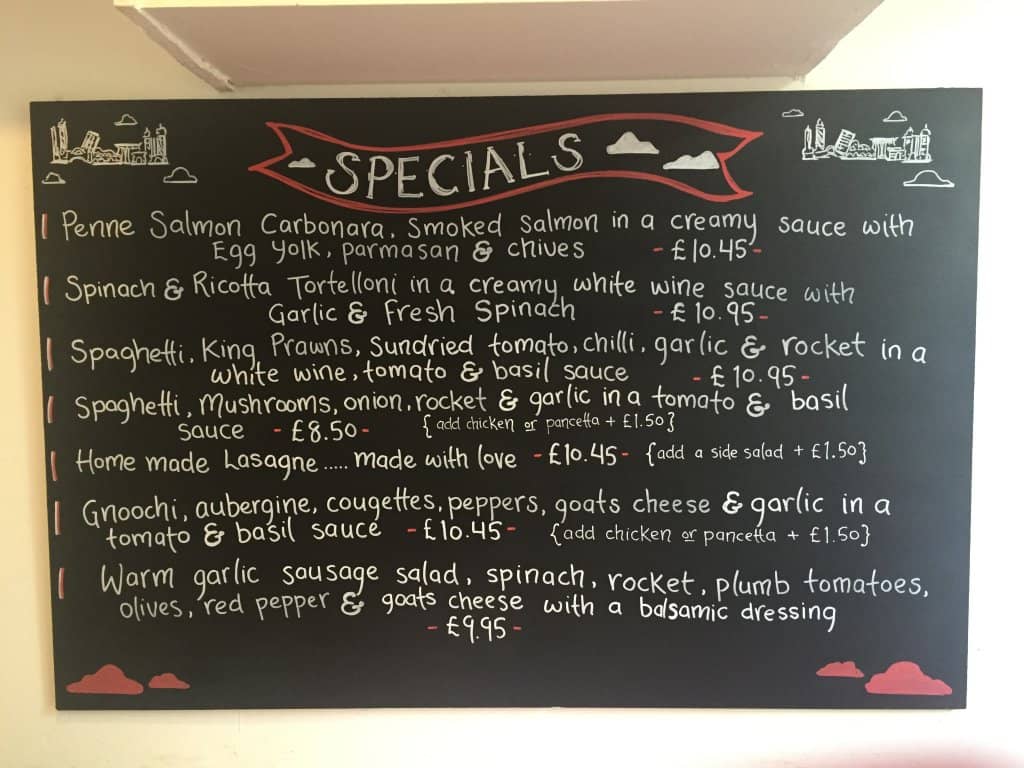 SPECIALS
Penne Salmon Carbonara, Smoked Salmon in a creamy sauce with
Egg Yolk, parmasan & chives - £10.45 -
Spinach & Ricotta Tortelloni in a creamy white wine sauce with
Garlic & Fresh Spinach - £10.95 -
Spaghetti, King Prawns, Sundried tomato, chilli, garlic & rocket in a
white wine, tomato & basil sauce - £10.95 -
Spaghetti, Mushrooms, onion, rocket & garlic in a tomato & basil
sauce - £8.50 - {add chicken or pancetta + £1.50}
Home made Lasagne ..... made with love - £10.45 - {add a side salad + £1.50}
Gnoochi, aubergine, cougettes, peppers, goats cheese & garlic in a
tomato & basil sauce - £10.45 - {add chicken or pancetta + £1.50}
Warm garlic sausage salad, spinach, rocket, plumb tomatoes,
olives, red pepper & goats cheese with a balsamic dressing
- £9.95 -